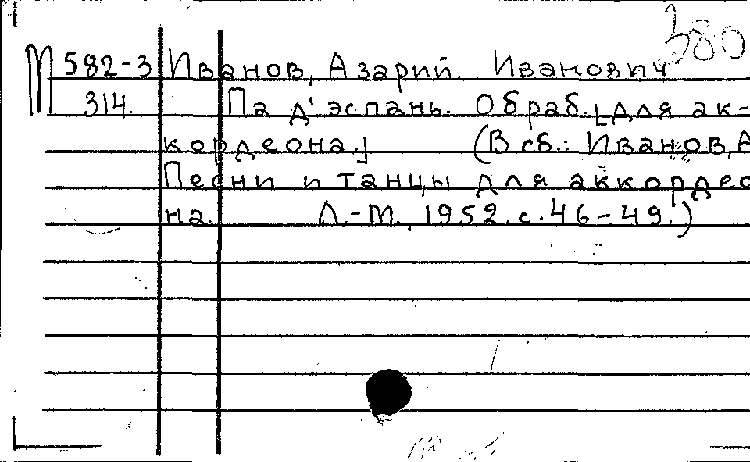 380
М 582-3 Иванов, Азарий Иванович
314. Па д'эспань. Обраб. [для ак-
кордеона.] (В сб.: Иванов, А
Песни и танцы для аккордео
на. Л.-М., 1952. с. 46-49.)